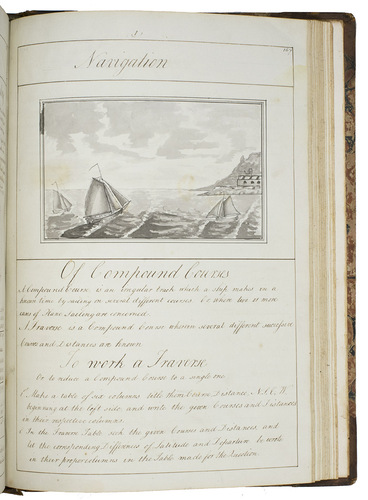 Navigation
Of Compound Courses
A Compound Course is an irregular track which a ship makes in a
known time by sailing on several different courses. Or where two or more
cases of Plane Sailing are concerned.
A Traverse is a Compound Course wherein several different successive
Courses and Distances are known.
To work a Traverse
Or to reduce a Compound Course to a single one.
Make a table of six columns title them Course, Distance, N. S. E. W.
beginning at the left side and write the given Courses and Distances
in their respective columns.
In the Traverse Table seek the given Courses and Distances, and
let the corresponding Differences of Latitude and Departure be wrote
in their proper columns in the Table made for the Question.